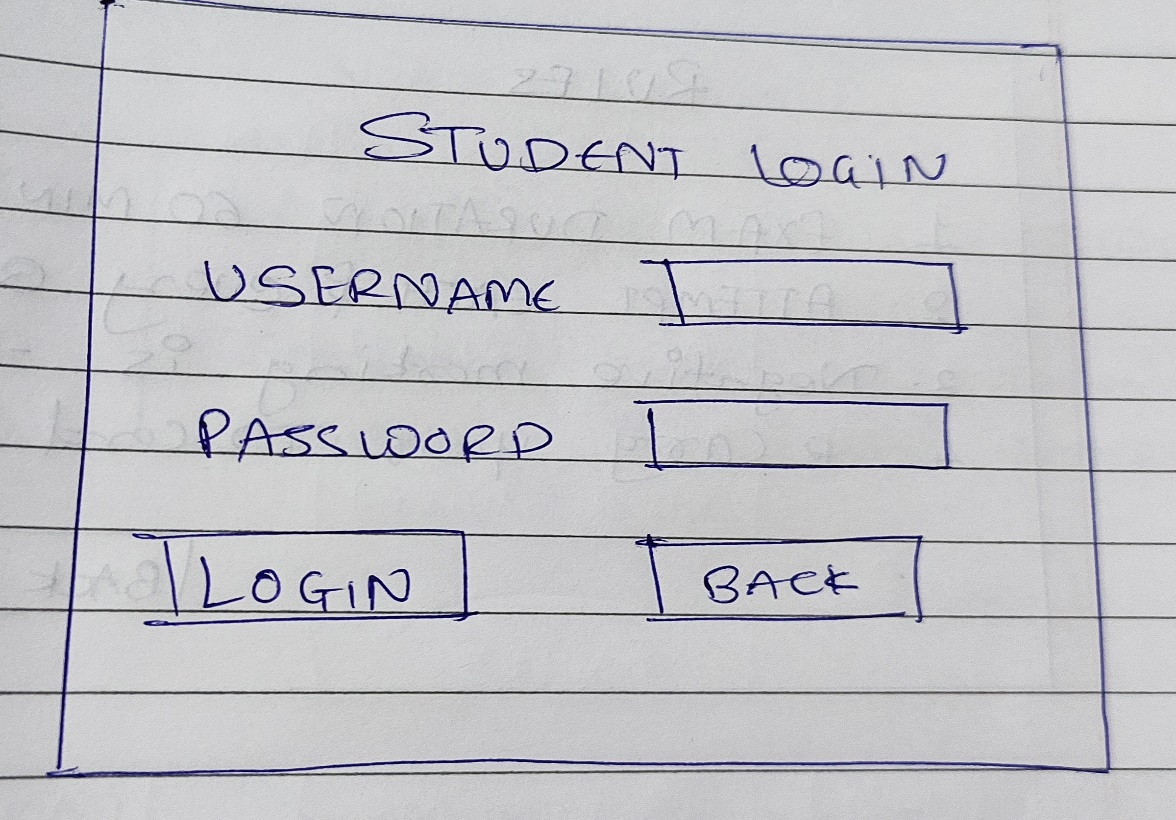 STUDENT LOGIN
USERNAME
PASSWOORD
LOGIN BACK